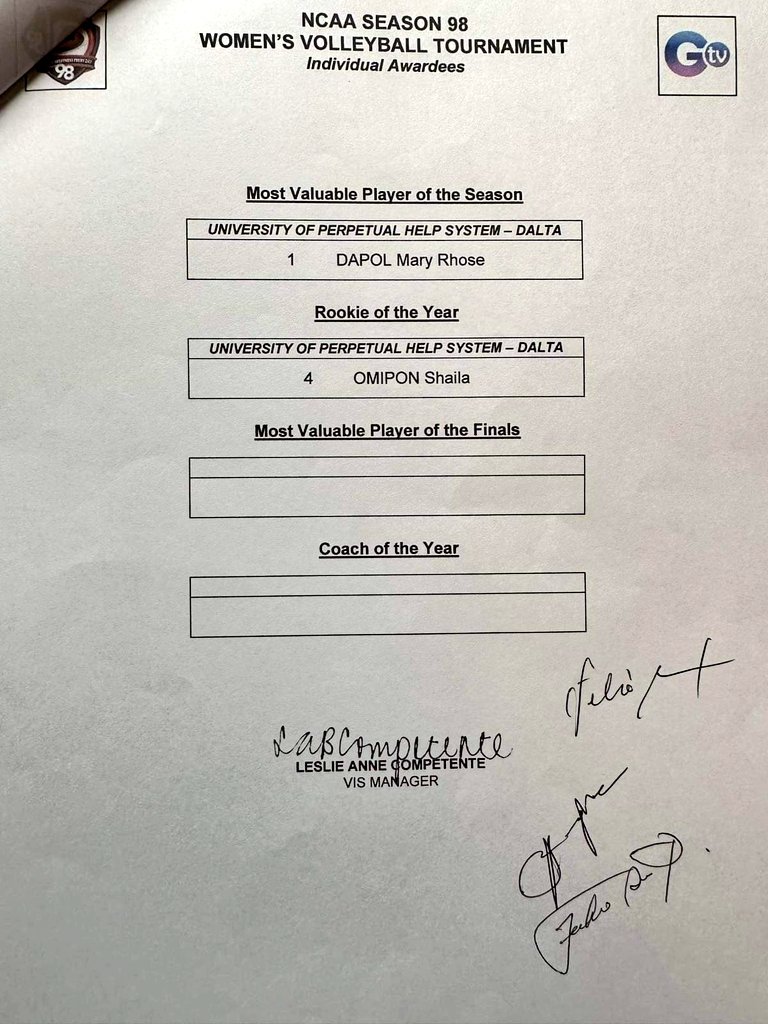 NCAA SEASON 98
WOMEN'S VOLLEYBALL TOURNAMENT
Individual Awardees
98
Gtv
Most Valuable Player of the Season
UNIVERSITY OF PERPETUAL HELP SYSTEM – DALTA
1 DAPOL Mary Rhose
Rookie of the Year
UNIVERSITY OF PERPETUAL HELP SYSTEM – DALTA
4 OMIPON Shaila
Most Valuable Player of the Finals
Coach of the Year
LABCompetente
LESLIE ANNE COMPETENTE
VIS MANAGER